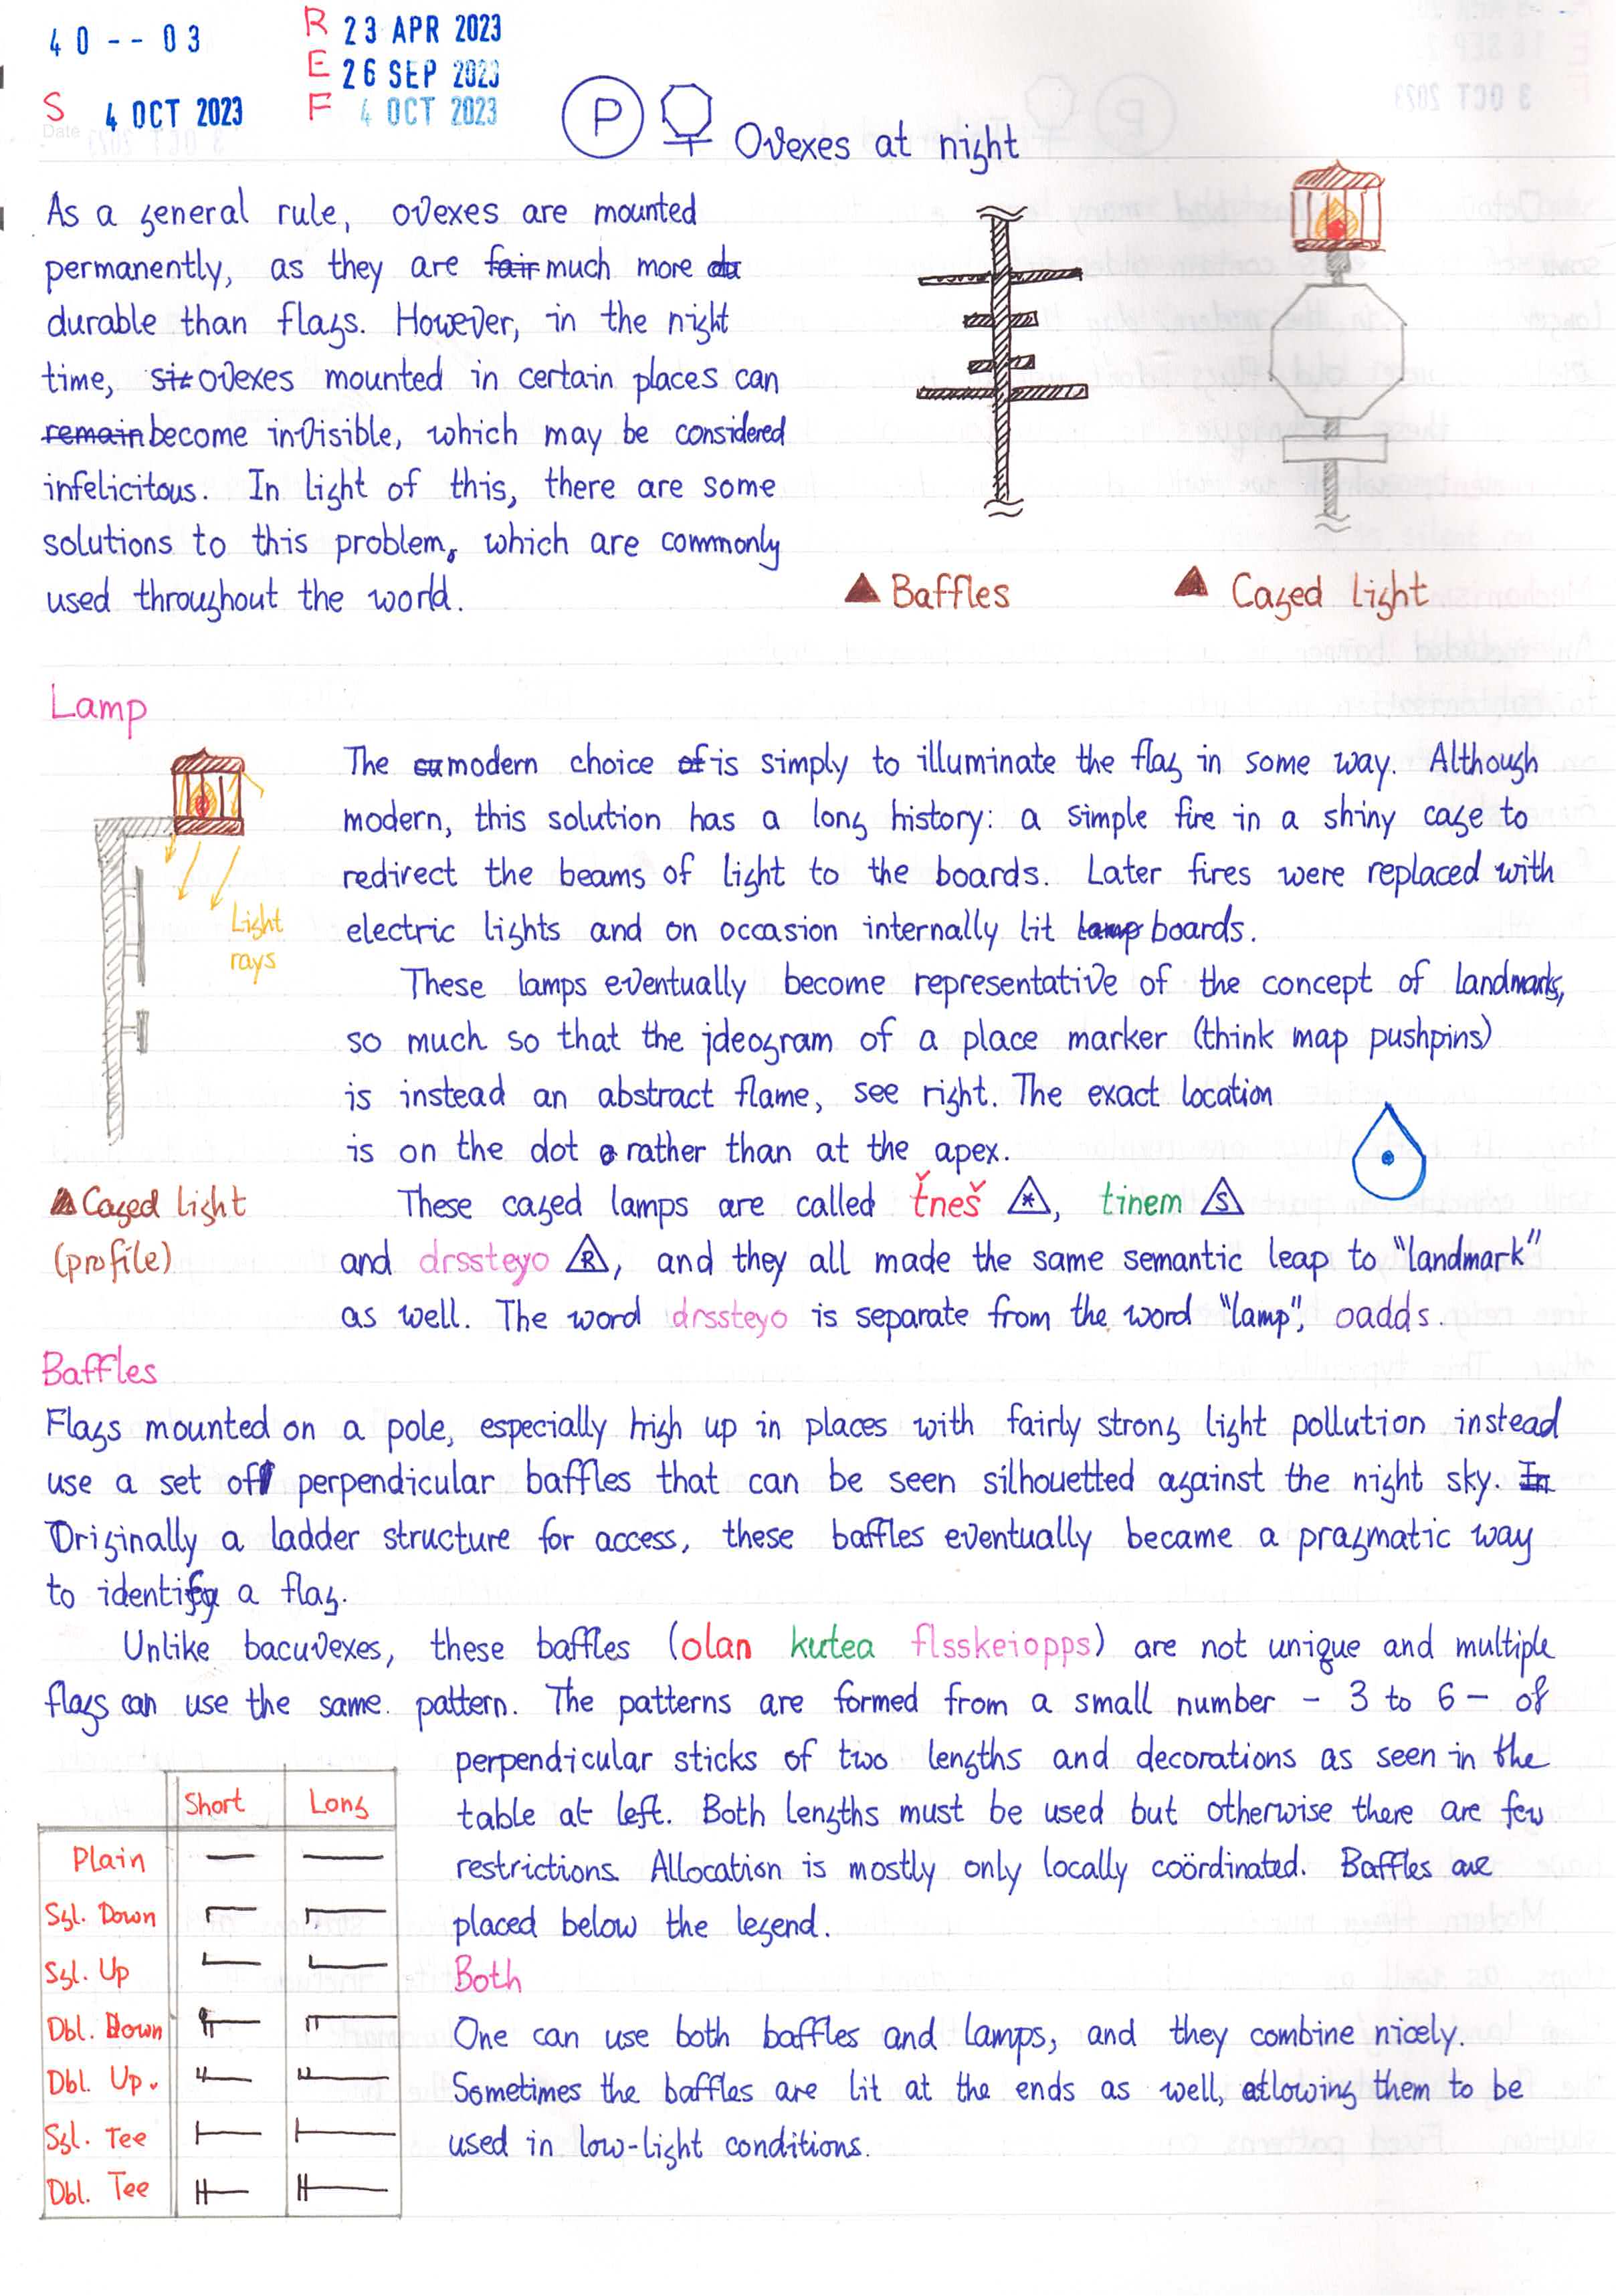 40--03
R 23 APR 2023
E 26 SEP 2023
S 4 OCT 2023 F 4 OCT 2023
Date
P Ovexes at night
As a general rule, ovexes are mounted
permanently, as they are fair much more du
durable than flags. However, in the night
time, sit ovexes mounted in certain places can
remain become invisible, which may be considered
infelicitous. In light of this, there are some
solutions to this problem, which are commonly
used throughout the world.
Baffles
Caged light
Lamp
The cu modern choice of is simply to illuminate the flag in some way. Although
modern, this solution has a long history: a simple fire in a shiny cage to
redirect the beams of light to the boards. Later fires were replaced with
electric lights and on occasion internally lit lamp boards.
Light
rays
These lamps eventually become representative of the concept of landmarks,
so much so that the ideogram of a place marker (think map pushpins)
is instead an abstract flame, see right. The exact location
is on the dot rather than at the apex.
Caged light
(profile)
These caged lamps are called ťneš *, tinem S
and drssteyo R, and they all made the same semantic leap to "landmark"
as well. The word drssteyo is separate from the word "lamp", oadds.
Baffles
Flags mounted on a pole, especially high up in places with fairly strong light pollution instead
use a set of perpendicular baffles that can be seen silhouetted against the night sky. In
Originally a ladder structure for access, these baffles eventually became a pragmatic way
to identify a flag.
Unlike bacuvexes, these baffles (olan kutea flsskeiopps) are not unique and multiple
flags can use the same pattern. The patterns are formed from a small number - 3 to 6 - of
perpendicular sticks of two lengths and decorations as seen in the
table at left. Both lengths must be used but otherwise there are few
restrictions. Allocation is mostly only locally coördinated. Baffles are
placed below the legend.
Short Long
Plain
Sgl. Down
Sgl. Up
Dbl. Down
Dbl. Up.
Sgl. Tee
Dbl. Tee
Both
One can use both baffles and lamps, and they combine nicely.
Sometimes the baffles are lit at the ends as well, allowing them to be
used in low-light conditions.